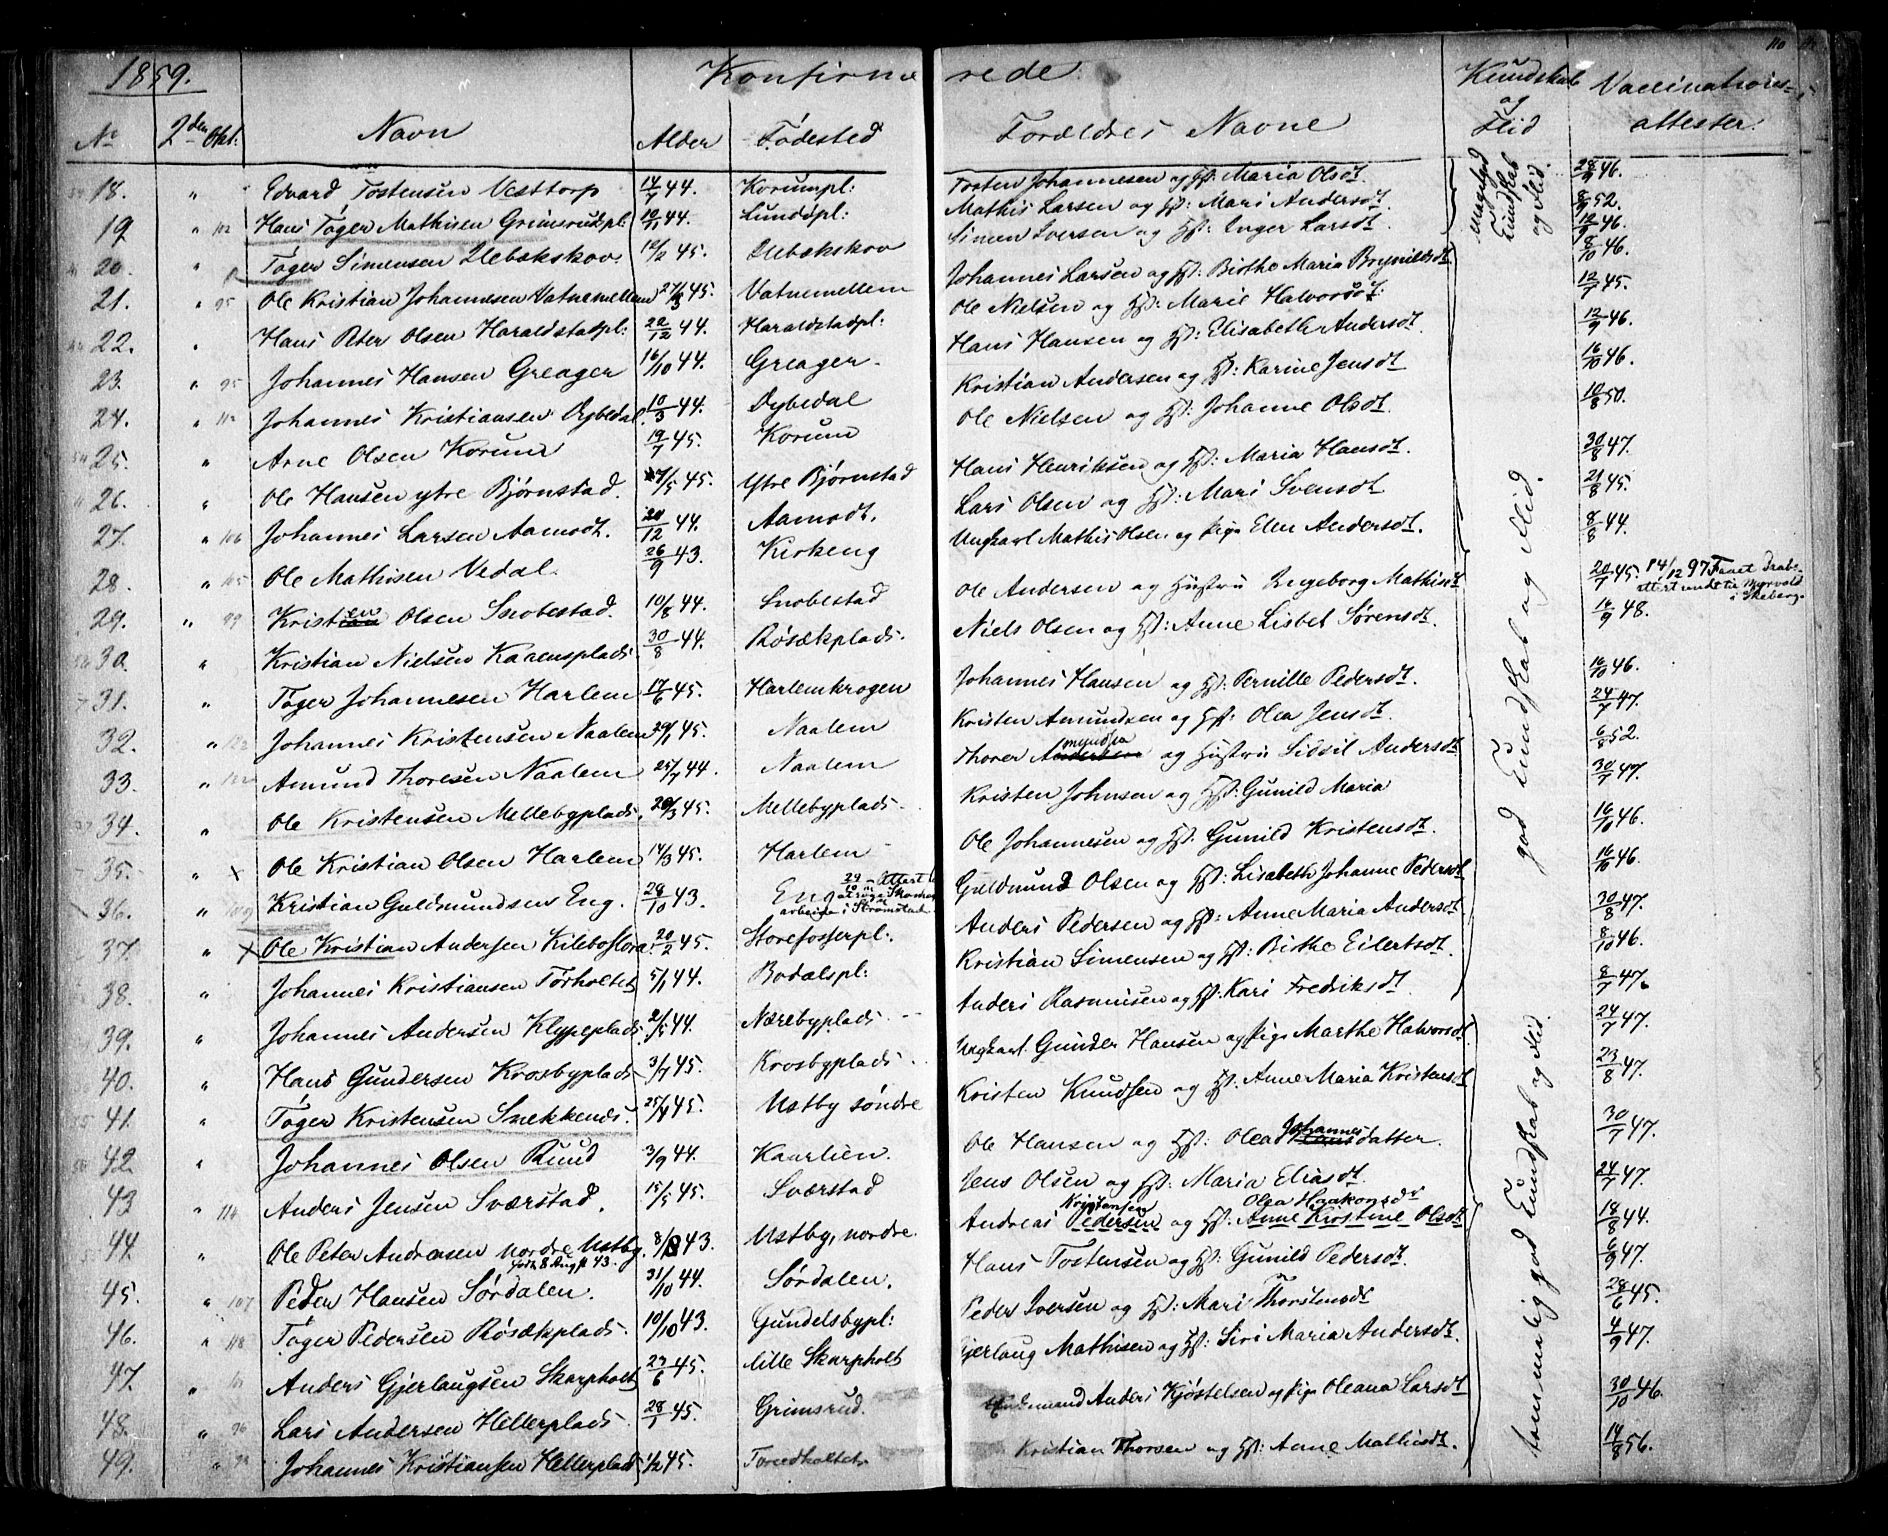 1859. Konfirmerede Kundskab og Flid Vaccinations-attester. 110
No 2den Okt. Navn Alder Fødested Forældres Navne
18. " Edvard Tostensen Vesttorp 14/7 44. Korumpl: Tosten Johannesen og Hst: Maria Olsdt. 28/9 46.
19 " 102 Hans Tøger Mathisen Grimsrudpl: 10/11 44. Lundbpl: Mathis Larsen og Hst: Mari Andersdt. 8/9 52.
20. " Tøger Simensen Uebækskov. 12/2 45. Uebækskov Simen Iversen og Hst: Inger Larsdt. 12/9 46.
21. " 95 Ole Kristian Johannesen Vatnemellem 27/3 45. Vatnemellem Johannes Larsen og Hst: Birthe Maria Brynildsdt 8/10 46.
22. " Hans Peter Olsen Haraldstadpl: 22/12 44. Haraldstadpl: Ole Nielsen og Hst: Marie Halvorsdt. 12/7 45.
23. " 95 Johannes Hansen Greager 16/10 44. Greager. Hans Hansen og Hst: Elisabeth Andersdt. 12/9 46.
24. " 112 Johannes Kristiansen Dybedal. 10/3 44. Dybedal Kristian Andersen og Hst: Karine Jensdt 16/10 46.
25. " Arne Olsen Korum 19/7 45. Korum Ole Nielsen og Hst: Johanne Olsdt. 10/8 50.
26. " Ole Hansen ytre Bjørnstad. 7/5 45. Ytre Bjørnstad Hans Henriksen og Hst: Maria Hansdt. 30/8 47.
27. " 106 Johannes Larsen Aamodt. 20/12 44. Aamodt. Lars Olsen og Hst: Mari Svensdt 21/8 45.
28. " 105 Ole Mathisen Vedal. 26/9 43. Kirkeng Ungkarl Mathis Olsen og Pige Elen Andersdt. 8/8 44.
29. " 99 Kristen Olsen Snobestad. 10/8 44. Snobestad Ole Andersen og Hustru Ingeborg Mathisdt 20/7 45. 14/12 97 attest
30. " Kristian Nielsen Karensplads. 30/8 44. Røsækplads. Niels Olsen og Hst: Anne Lisbet Sørensdt. 16/9 48.
31. " Tøger Johannesen Harlem 17/6 45. Harlemkrogen Johannes Hansen og Hst: Pernille Pedersdt. 16/10 46.
32. " 122 Johannes Kristensen Naalem 29/1 45. Naalem Kristen Amundsen og Hst: Olea Jensdt. 24/7 47.
33. " Amund Thoresen Naalem 25/7 44. Naalem Thorer Andersen og Hustru Sidsil Andersdt 6/8 52.
34. " Ole Kristensen Mellebyplads. 20/3 45. Mellebyplads Kristen Johnsen og Hst: Gunild Maria 30/7 47.
35. " x Ole Kristian Olsen Harlem 14/3 45. Harlem Ole Johannesen og Hst: Gunild Kristensdt. 16/10 46.
36. " 109 Kristian Guldmundsen Eng. 29/10 43. Eng Guldmund Olsen og Hst: Lisabeth Johanne Pedersdt 16/10 46.
37. " x Ole Kristian Andersen Kileboflora. 20/2 45. Storefosserpl: Anders Pedersen og Hst: Anne Maria Andersdt 30/8 47.
38. " Johannes Kristiansen Torholtet 5/1 44. Bodalspl: Kristian Simensen og Hst: Birthe Eilertsdt. 8/10 46.
39. " Johannes Andersen Klypeplads. 2/5 44. Nærebyplads Anders Rasmusen og Hst. Kari Fredriksdt. 8/7 47.
40. " Hans Gundersen Krosbyplads 3/7 45. Krosbyplads Ungkarl. Gunder Hansen og Pige Marthe Halvorsdt 24/7 47.
41. " Tøger Kristensen Snekkenes. 25/4 45. Ustby søndre Kristen Knudsen og Hst: Anne Maria Kristensdt 23/8 47.
42 " Johannes Olsen Ruud 3/9 44. Kaarlien. Ole Hansen og Hst: Olea Johannesdatter. 30/7 47.
43 " 114 Anders Jensen Sværstad. 15/5 45. Sværstad Jens Olsen og Hst: Maria Eliasdt. 24/7 47.
44. " Ole Peter Andreasen nordre Ustby. 8/8 43. Ustby, nordre. Andreas Pedersen og Hst: Anne Kirstine Olsdt 18/8 44.
født 8 Augst 43. Kristansen Olea Haakonsdt
45. " 107 Peder Hansen Sørdalen. 31/10 44. Sørdalen. Hans Tostensen og Hst: Gunild Pedersdt. 6/9 47.
46. " 118 Tøger Pedersen Røsækplads. 10/10 43. Gundelsbypl: Peder Iversen og Hst: Mari Thorstensdt 28/6 45.
47. " Anders Gjerlaugsen Skarpholt 23/6 45. lille Skarpholt Gjerlaug Mathisen og Hst: Siri Maria Andersdt. 4/9 47.
48. " 96 Lars Andersen Hellerplads. 28/1 45. Grimsrud. Anders Kjøstelsen og Pige Oleana Larsdt 30/10 46.
49. " Johannes Kristiansen Hellerplads 1/2 45. Kristian Thorsen og Hst: Anne Mathisdt. 14/8 56.
maguligod Kundskab og Flid.
god Kundskab og Flid.
temmelig god Kundskab og Flid.